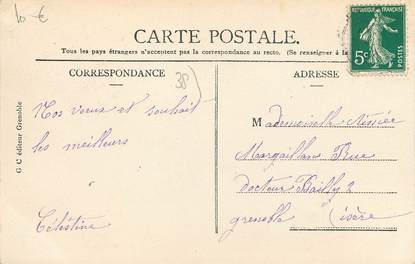 10 €
CARTE POSTALE.
RÉPUBLIQUE FRANÇAISE
5c
POSTES
Tous les pays étrangers n'acceptent pas la correspondance au recto. (Se renseigner à la
CORRESPONDANCE
38
ADRESSE
G C éditeur Grenoble
Nos vœux et souhait
les meilleurs
Célestine
Mademoiselle
Margaillan Rue
docteur Bailly 2
grenoble (isère)